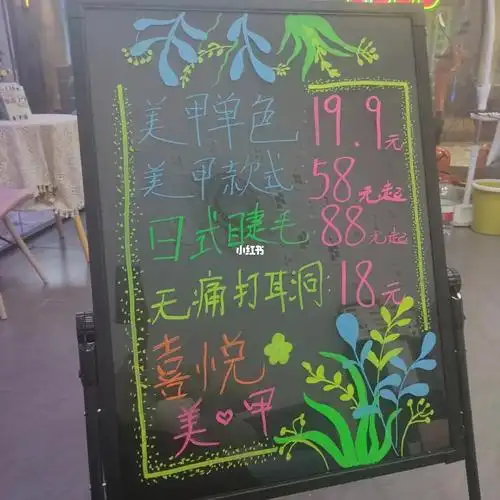 美甲单色 19.9元
美甲款式 58元起
日式睫毛 88元起
小红书
无痛打耳洞 18元
喜悦
美♡甲